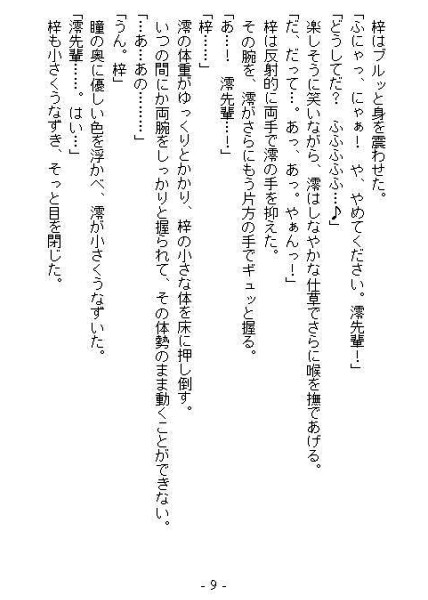 梓はブルッと身を震わせた。
「ふにゃっ、にゃぁ！　や、やめてください。澪先輩！」
「どうしてだ？　ふふふふふ…♪」
楽しそうに笑いながら、澪はしなやかな仕草でさらに喉を撫であげる。
「だ、だって…。あっ、あっ。やぁんっ！」
梓は反射的に両手で澪の手を抑えた。
その腕を、澪がさらにもう片方の手でギュッと握る。
「あ…！　澪先輩…！」
「梓……」
澪の体重がゆっくりとかかり、梓の小さな体を床に押し倒す。
いつの間にか両腕をしっかりと握られて、その体勢のまま動くことができない。
「…あ、あの………」
「うん。梓」
瞳の奥に優しい色を浮かべ、澪が小さくうなずいた。
「澪先輩……。はい…」
梓も小さくうなずき、そっと目を閉じた。
- 9 -